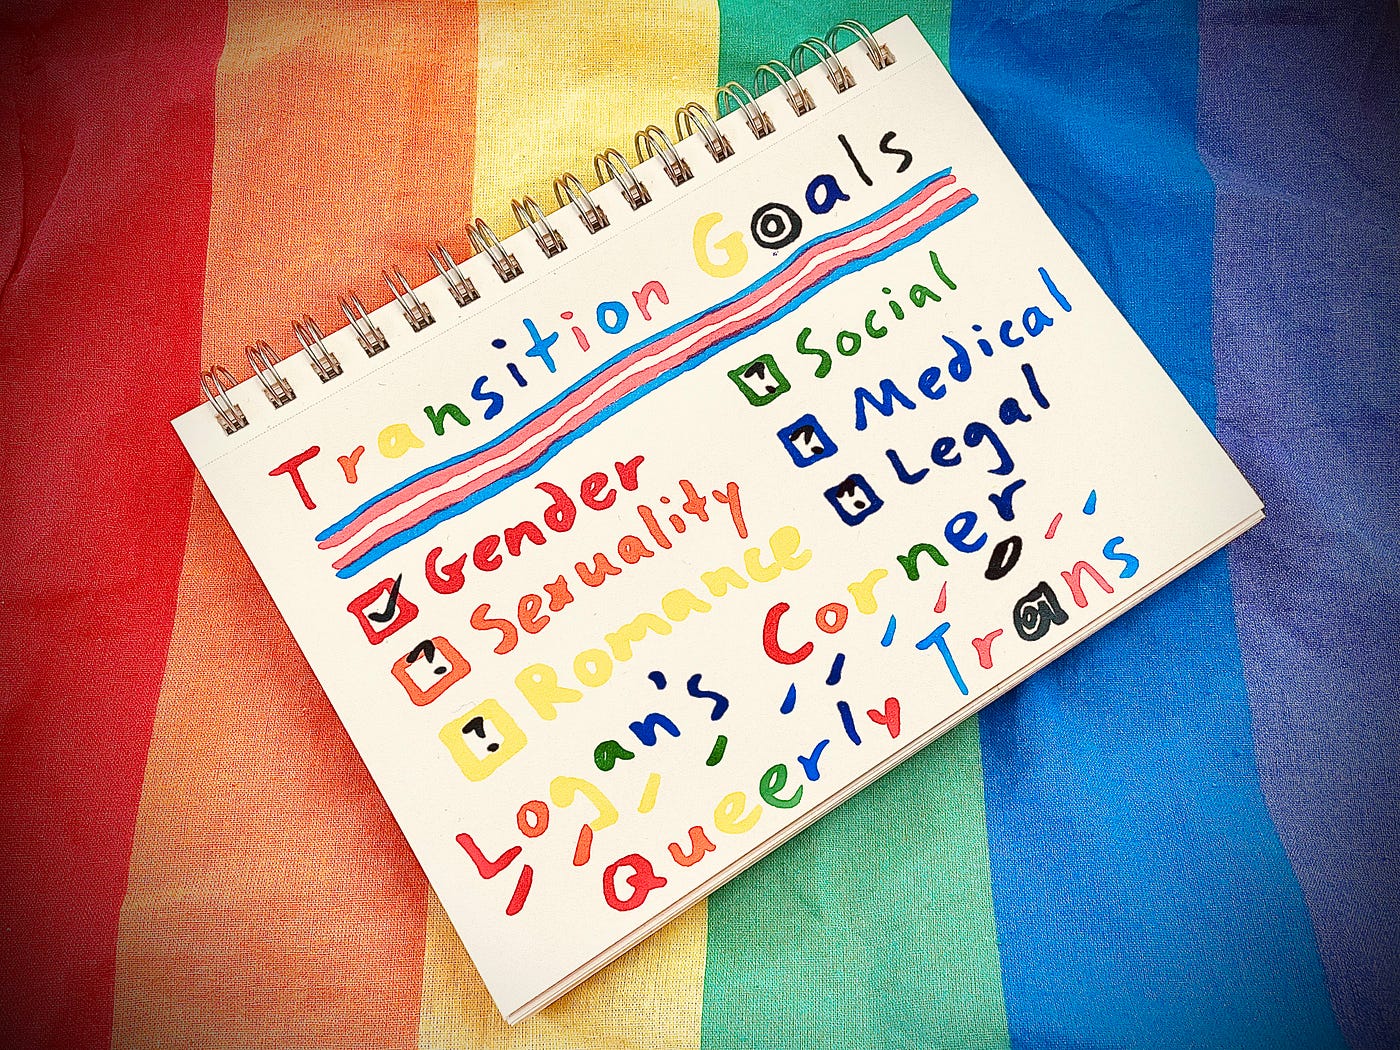 Transition Goals
✓ Gender
? Sexuality
? Romance
? Social
? Medical
? Legal
Logan's Corner
Queerly Trans